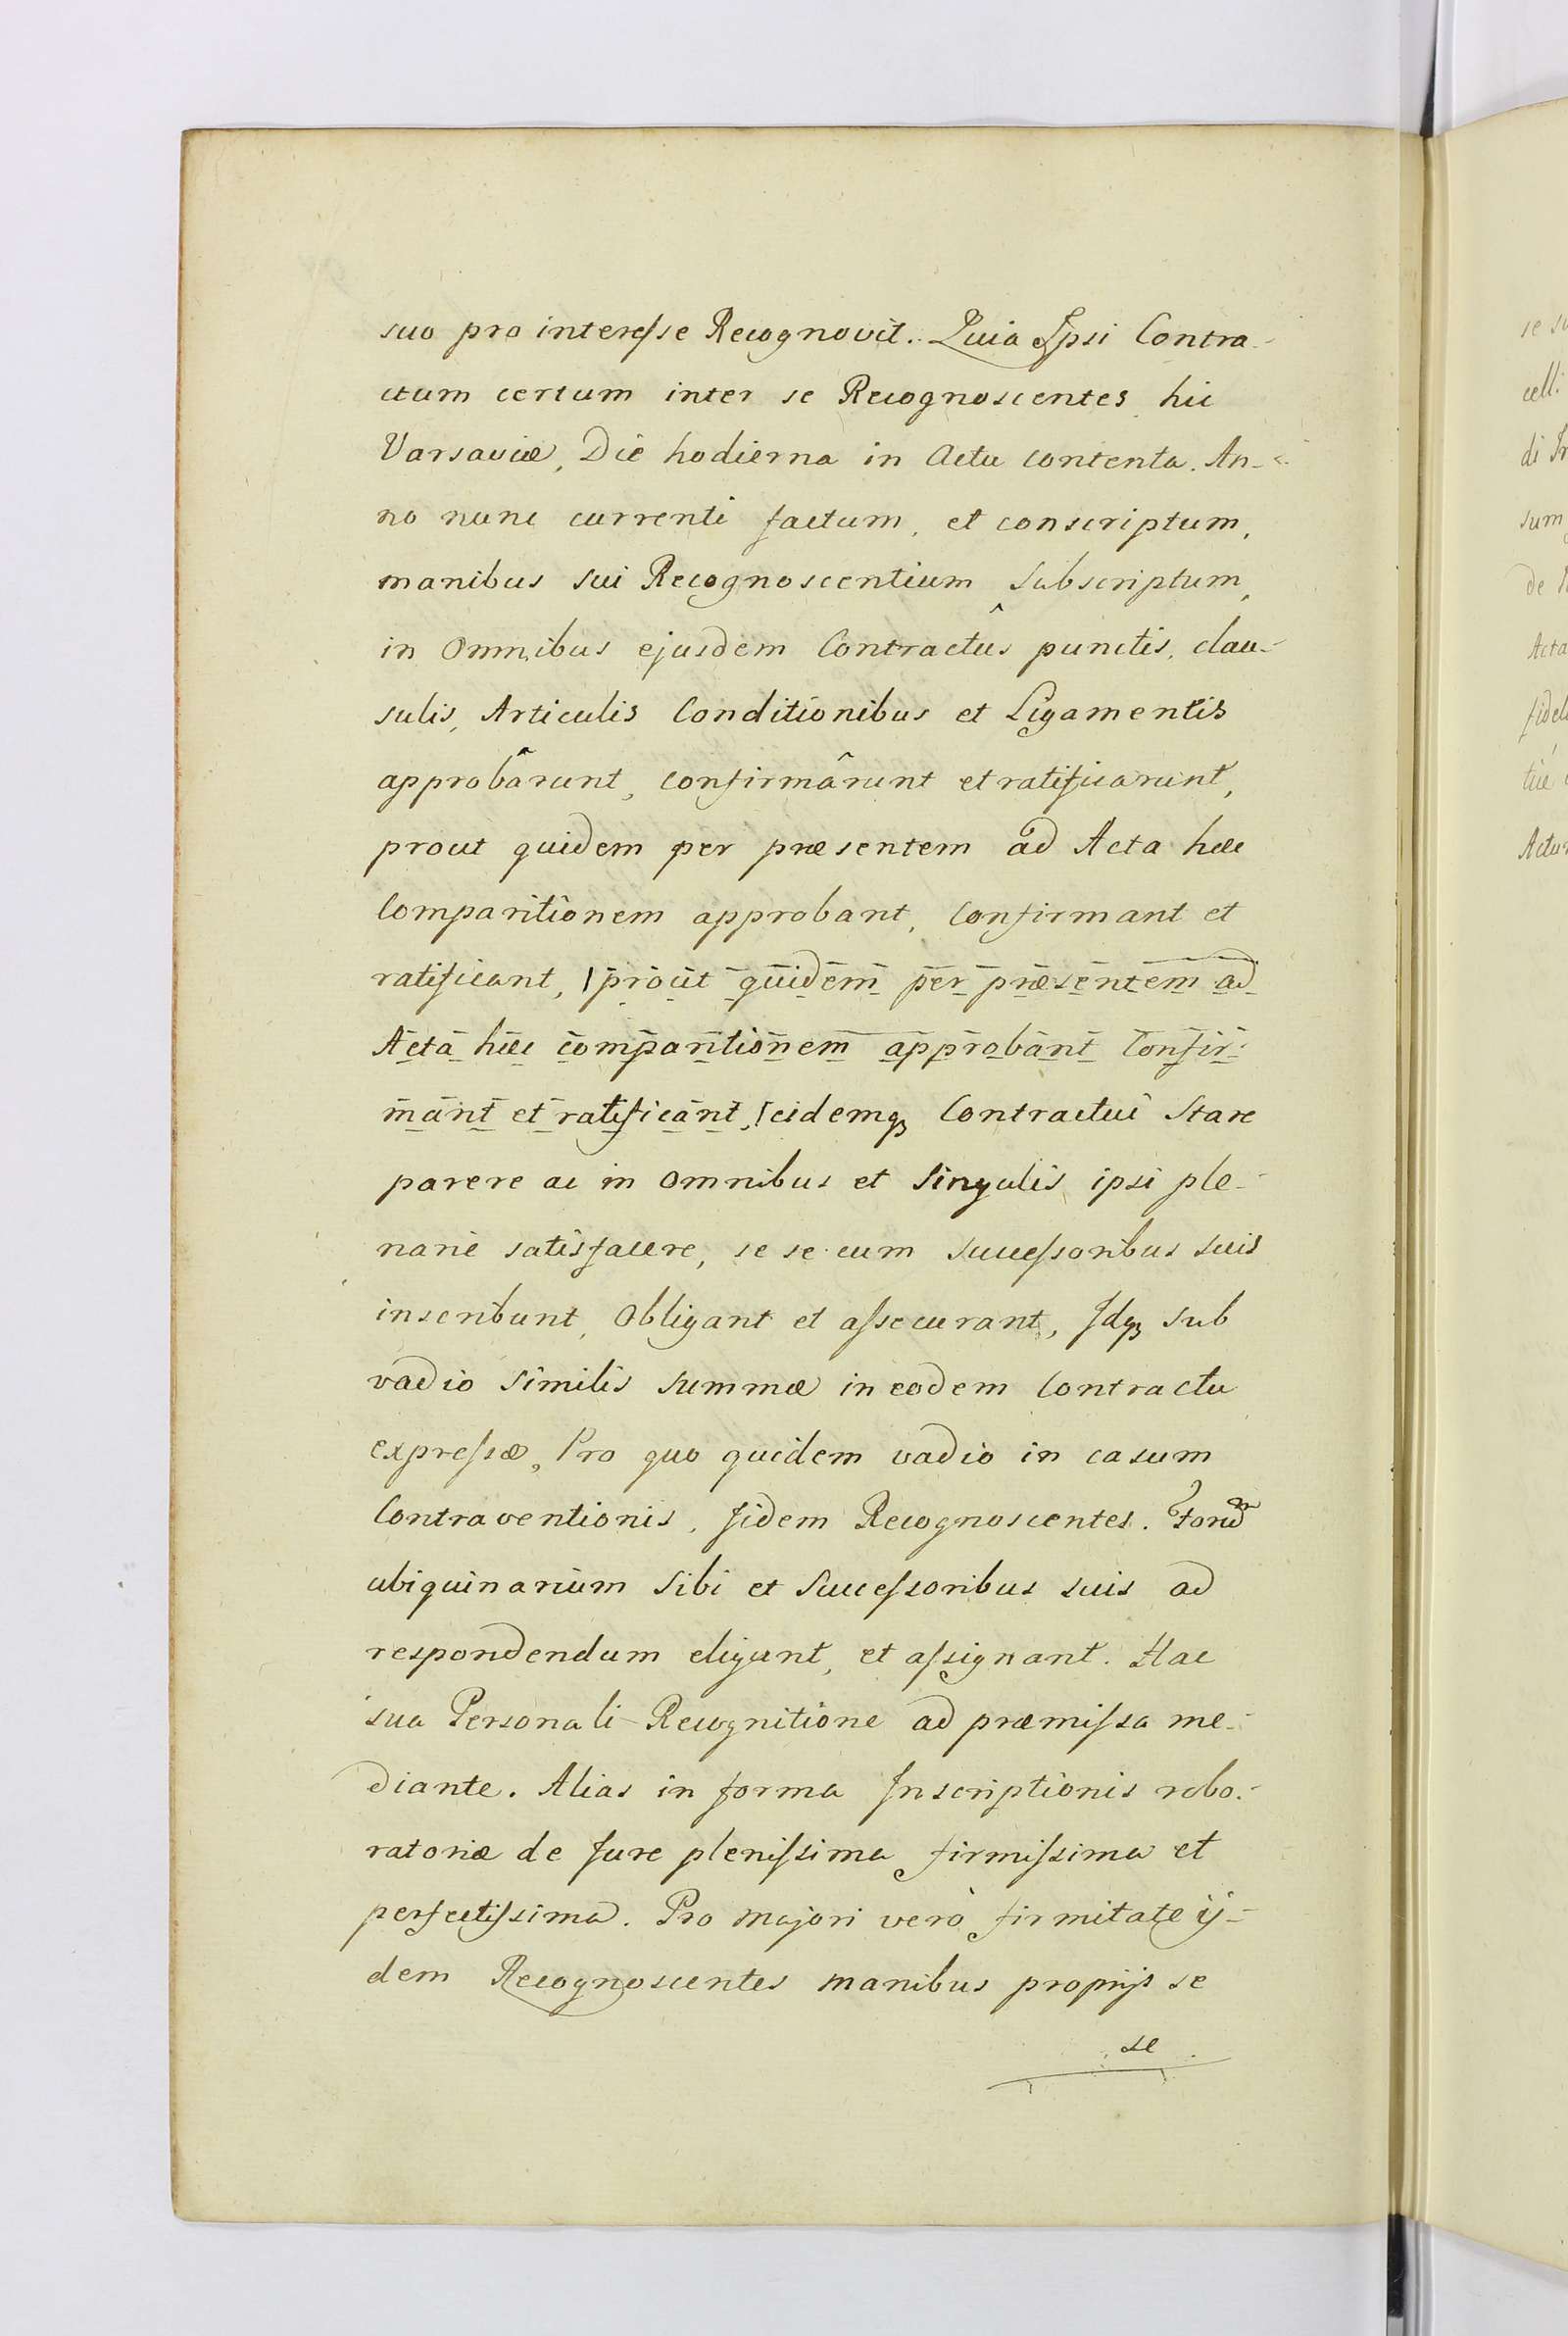 suo pro interesse Recognovit. Quia Ipsi Contra-
ctum certum inter se Recognoscentes hic
Varsaviæ, Die hodierna in Actu contenta. An-
no nunc currenti factum, et conscriptum,
manibus sui Recognoscentium subscriptum,
in Omnibus ejusdem Contractûs punctis, clau-
sulis, Articulis Conditionibus et Ligamentis
approbârunt, confirmârunt et ratificarunt,
prout quidem per præsentem ad Acta hæc
Comparitionem approbant, Confirmant et
ratificant, prout quidem per præsentem ad
Acta hæc comparitionem approbant Confir-
mant et ratificant, eidemqꝫ Contractui Stare
parere ac in Omnibus et Singulis ipsi ple-
narie satisfacere, se se cum Successoribus suis
inscribunt, Obligant et assecurant, Idqꝫ sub
vadio similis summæ in eodem Contractu
expressæ, Pro quo quidem vadio in casum
Contraventionis, Iidem Recognoscentes.
ubiquinarium Sibi et Successoribus suis ad
respondendum eligunt, et assignant. Hac
sua Personali Recognitione ad præmissa me-
diante. Alias in forma Inscriptionis robo-
ratoriæ de Jure plenissima firmissima et
perfectissima. Pro majori verò firmitate ij-
dem Recognoscentes manibus proprijs se
se
se
celli
sum
de
Acta